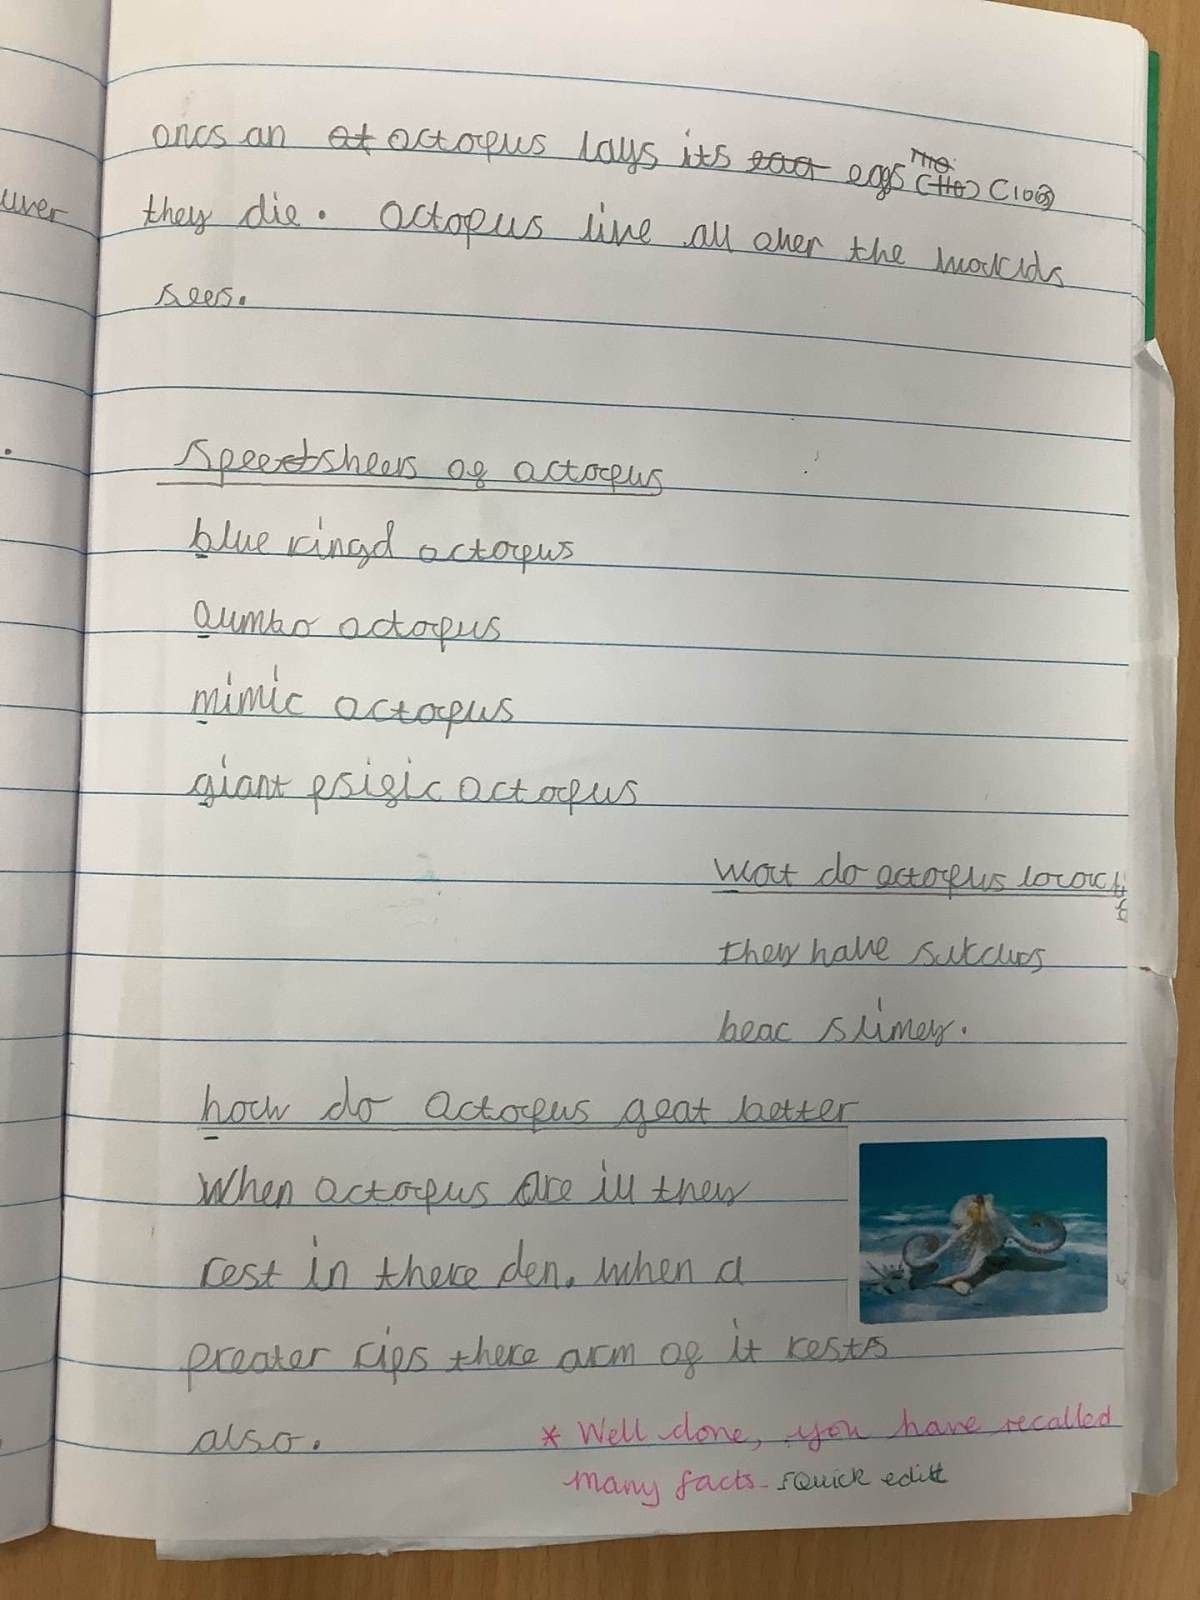 oncs an octopus lays its egs (100)
they die. octopus live all over the workids
sees.
uver
speetsheers of octopus
blue ringd octopus
dumbo octopus
mimic octopus
giant psific octopus
wat do octopus
they have sukcurs
beac slimey.
how do octopus geat better
When octopus are ill they
rest in there den. when a
preater rips there arm of it rests
also.
* Well done, you have recalled
many facts. Quick edit